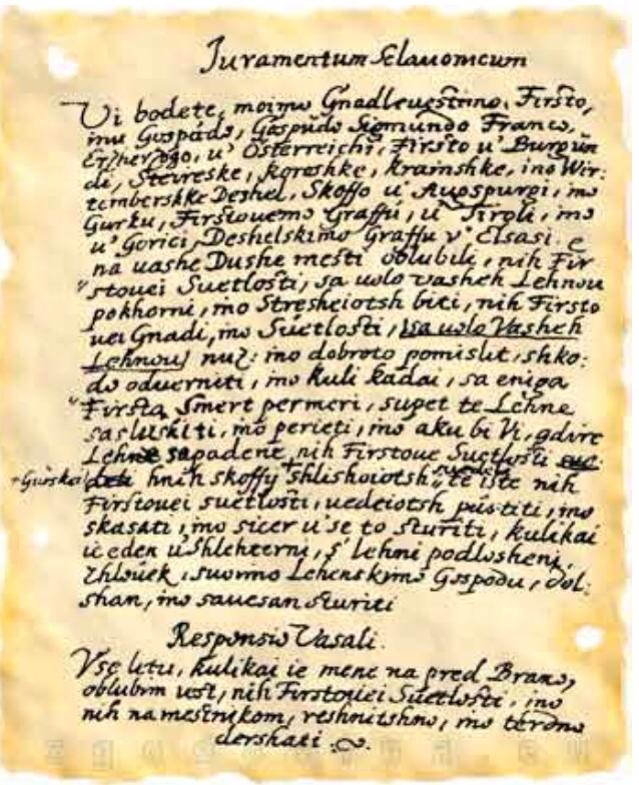 Juramentum Sclauonicum
Vi bodete, moimo Gnadleuestimo, Firsto,
inu Gospudo, Gospudo Sigmundo Franco,
Erzherzogo, u' Osterreichi, Firsto u' Burgun
di, Steureske, koroshke, krainshke, ino Wir:
temberskke Deshel, Skoffo u' Augspurgi, ino
Gurku, Firstouemo Graffu, u' Tiroli, ino
u' Gorici, Deshelskimo Graffu v' Elsasi. e
na uashe Dushe mesti oblubili, nih Fir
stouei Suetlosti, sa uolo vasheh Lehnou
pokhorni, ino Stresheiotsh biti, nih Firsto
uei Gnadi, ino Suetlosti, sa uolo Vasheh
Lehnou nuz: ino dobroto pomislit, shko:
do oduerniti, ino kuli kadai, sa eniga
Firsta Smert permeri, supet te Lehne
sasluskiti, ino perieti, ino aku bi Vi, gdire
Lehne sapadene, nih Firstoue Suetlosti
+Gurskei hnih skoffy shlishoiotsh, te iste nih
Firstouei suetlosti, uedeiotsh pustiti, ino
skasati, ino sicer u'se to sturiti, kulikai
ie eden u'Shlehterni, s' Lehmi podlosheni,
Zhlouek, suoimo Lehenskimo Gospodu, dol:
shan, ino sauesan sturiti
Responsio Vasali.
Vse letu, kulikai ie mene na pred Brano,
oblubim uest, nih Firstouiei Suetlosti, ino
nih namestnikom, reshnitshno, ino terdno
dershati